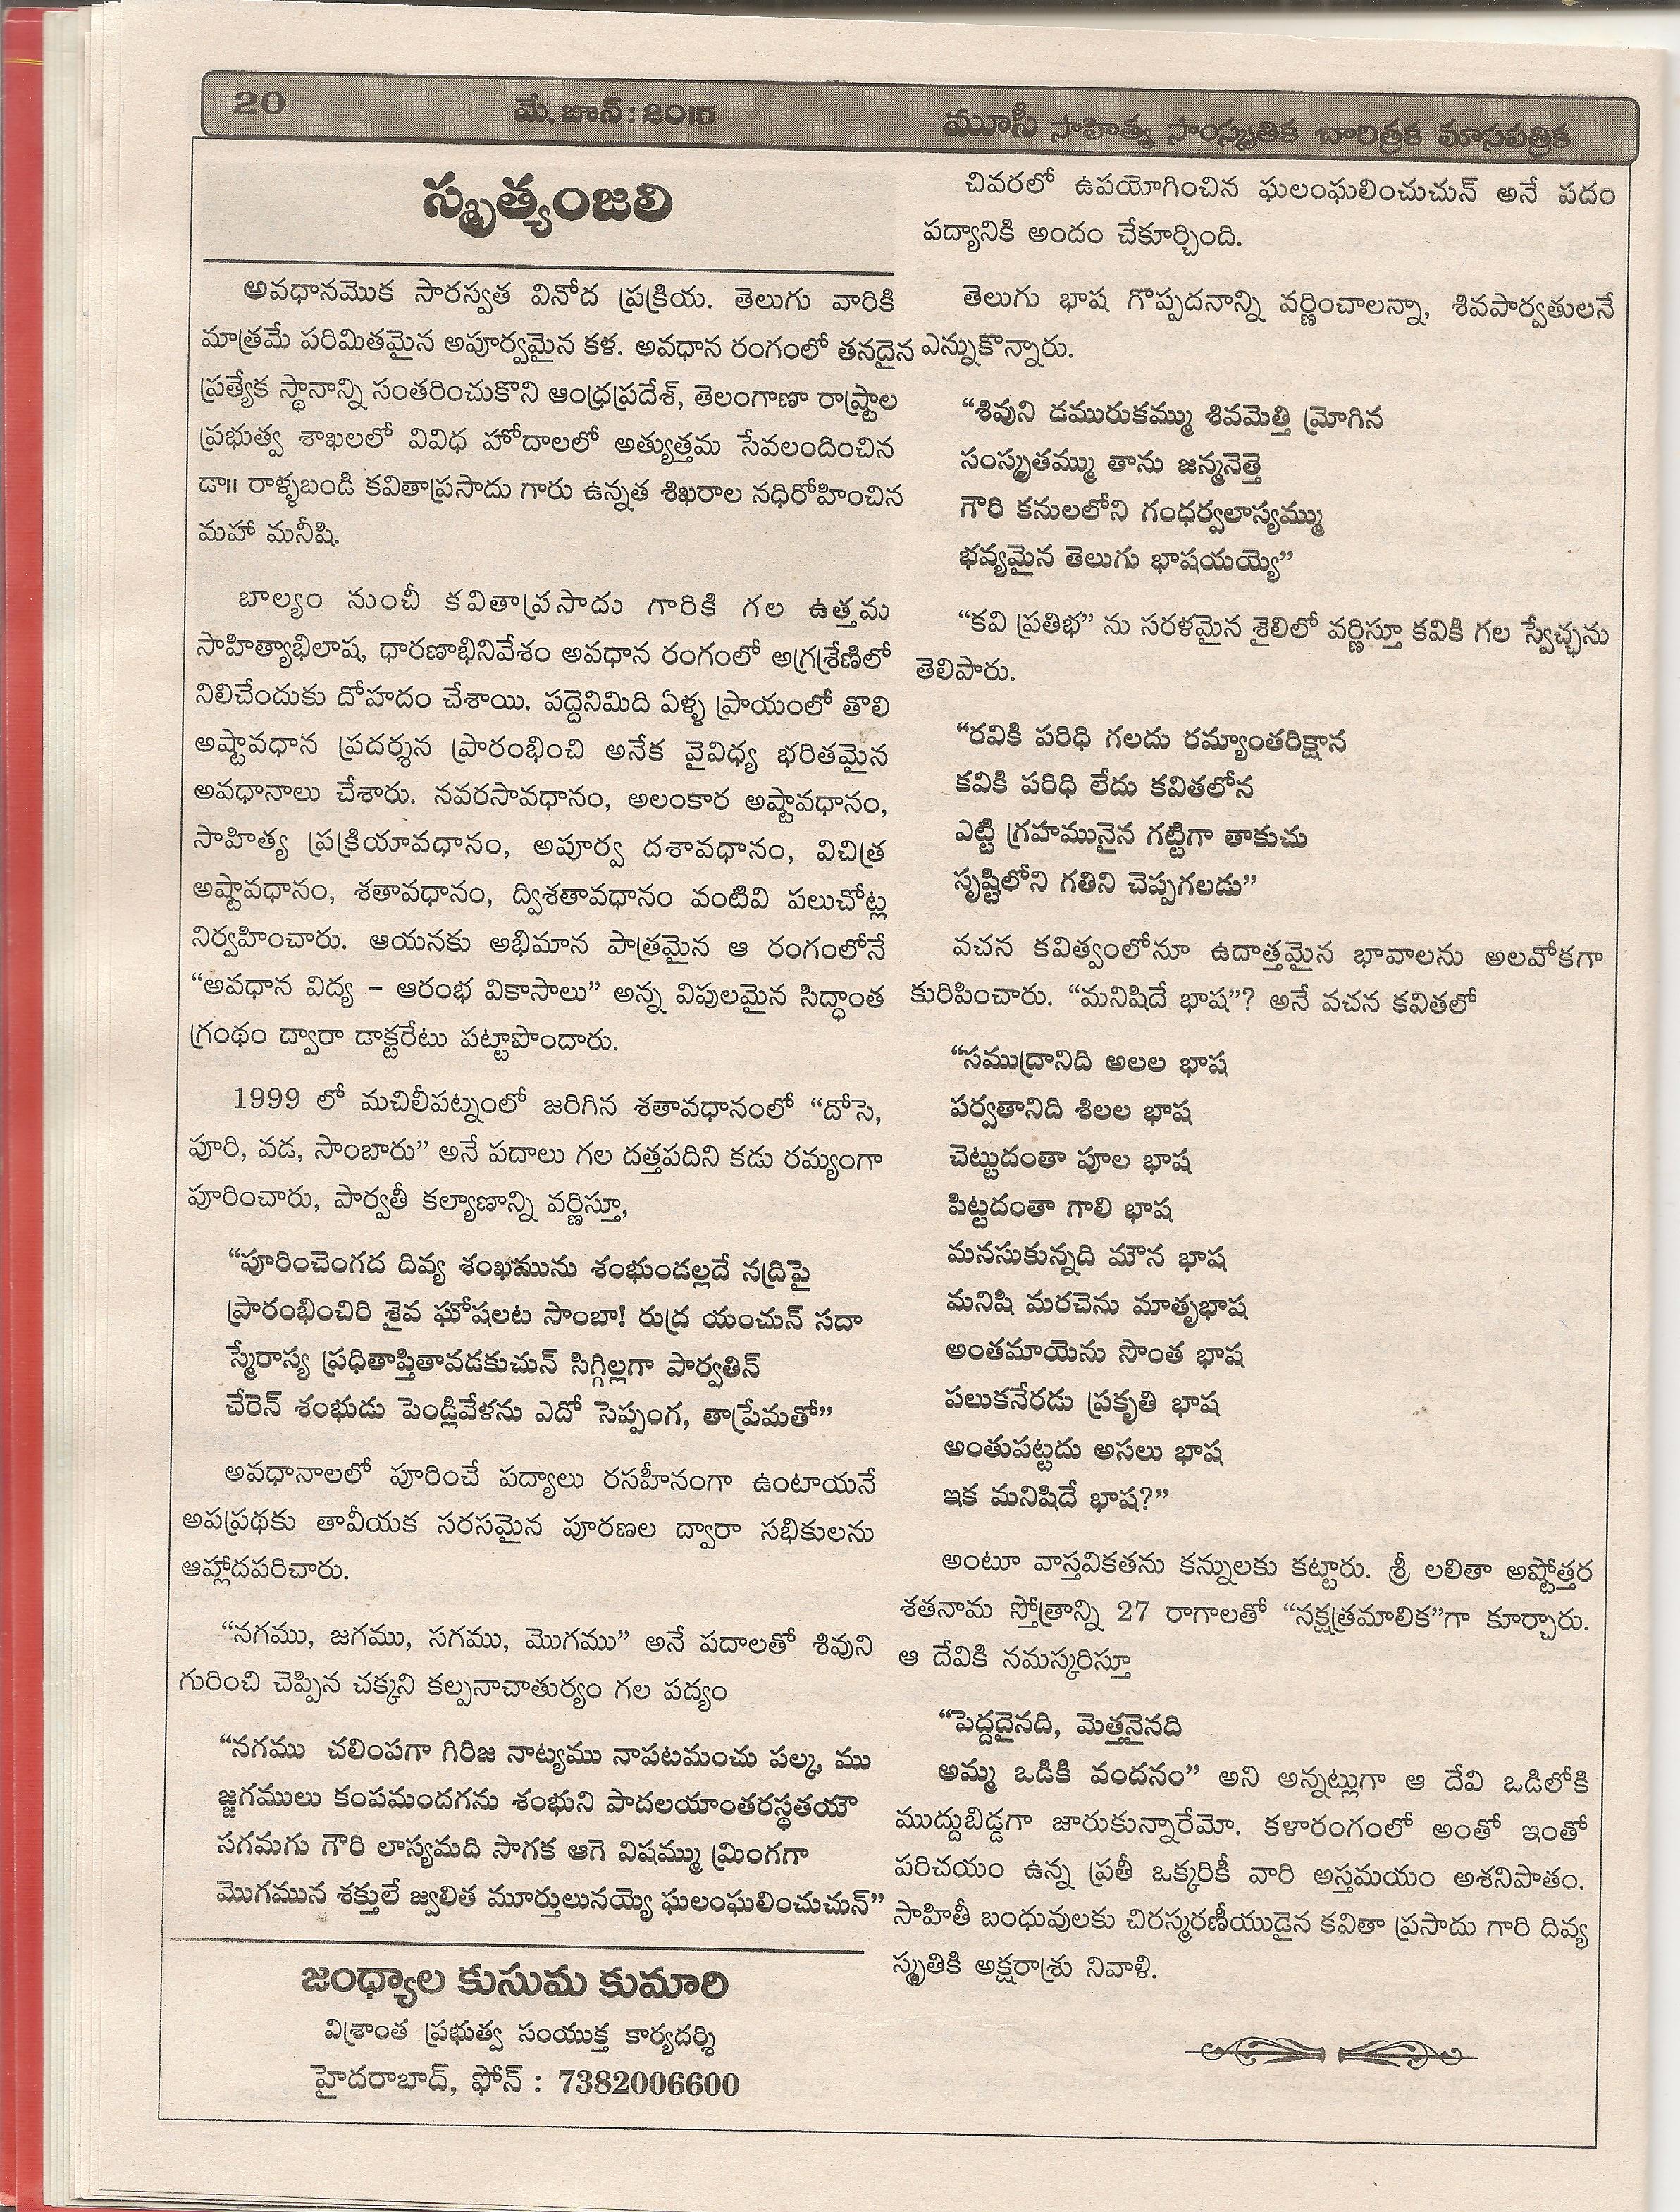 20 మే, జూన్ : 2015 మూసీ సాహిత్య సాంస్కృతిక చారిత్రక మాసపత్రిక
స్మృత్యంజలి
అవధానమొక సారస్వత వినోద ప్రక్రియ. తెలుగు వారికి
మాత్రమే పరిమితమైన అపూర్వమైన కళ. అవధాన రంగంలో తనదైన
ప్రత్యేక స్థానాన్ని సంతరించుకొని ఆంధ్రప్రదేశ్, తెలంగాణా రాష్ట్రాల
ప్రభుత్వ శాఖలలో వివిధ హోదాలలో అత్యుత్తమ సేవలందించిన
డా॥ రాళ్ళబండి కవితాప్రసాదు గారు ఉన్నత శిఖరాల నధిరోహించిన
మహా మనీషి.
బాల్యం నుంచీ కవితాప్రసాదు గారికి గల ఉత్తమ
సాహిత్యాభిలాష, ధారణాభినివేశం అవధాన రంగంలో అగ్రశ్రేణిలో
నిలిచేందుకు దోహదం చేశాయి. పద్దెనిమిది ఏళ్ళ ప్రాయంలో తొలి
అష్టావధాన ప్రదర్శన ప్రారంభించి అనేక వైవిధ్య భరితమైన
అవధానాలు చేశారు. నవరసావధానం, అలంకార అష్టావధానం,
సాహిత్య ప్రక్రియావధానం, అపూర్వ దశావధానం, విచిత్ర
అష్టావధానం, శతావధానం, ద్విశతావధానం వంటివి పలుచోట్ల
నిర్వహించారు. ఆయనకు అభిమాన పాత్రమైన ఆ రంగంలోనే
“అవధాన విద్య – ఆరంభ వికాసాలు” అన్న విపులమైన సిద్ధాంత
గ్రంథం ద్వారా డాక్టరేటు పట్టాపొందారు.
1999 లో మచిలీపట్నంలో జరిగిన శతావధానంలో “దోసె,
పూరి, వడ, సాంబారు” అనే పదాలు గల దత్తపదిని కడు రమ్యంగా
పూరించారు, పార్వతీ కల్యాణాన్ని వర్ణిస్తూ,
“పూరించెంగద దివ్య శంఖమును శంభుండల్లదే నద్రిపై
ప్రారంభించిరి శైవ ఘోషలట సాంబా! రుద్ర యంచున్ సదా
స్మేరాస్య ప్రధితాప్తితావడకుచున్ సిగ్గిల్లగా పార్వతిన్
చేరెన్ శంభుడు పెండ్లివేళను ఎదో సెప్పంగ, తాప్రేమతో”
అవధానాలలో పూరించే పద్యాలు రసహీనంగా ఉంటాయనే
అపప్రథకు తావీయక సరసమైన పూరణల ద్వారా సభికులను
ఆహ్లాదపరిచారు.
“నగము, జగము, సగము, మొగము” అనే పదాలతో శివుని
గురించి చెప్పిన చక్కని కల్పనాచాతుర్యం గల పద్యం
“నగము చలింపగా గిరిజ నాట్యము నాపటమంచు పల్క, ము
జ్జగములు కంపమందగను శంభుని పాదలయాంతరస్థతయౌ
సగమగు గౌరి లాస్యమది సాగక ఆగె విషమ్ము మ్రింగగా
మొగమున శక్తులే జ్వలిత మూర్తులునయ్యె ఘలంఘలించుచున్”
జంధ్యాల కుసుమ కుమారి
విశ్రాంత ప్రభుత్వ సంయుక్త కార్యదర్శి
హైదరాబాద్, ఫోన్ : 7382006600
చివరలో ఉపయోగించిన ఘలంఘలించుచున్ అనే పదం
పద్యానికి అందం చేకూర్చింది.
తెలుగు భాష గొప్పదనాన్ని వర్ణించాలన్నా, శివపార్వతులనే
ఎన్నుకొన్నారు.
“శివుని డమురుకమ్ము శివమెత్తి మ్రోగిన
సంస్కృతమ్ము తాను జన్మనెత్తె
గౌరి కనులలోని గంధర్వలాస్యమ్ము
భవ్యమైన తెలుగు భాషయయ్యె”
“కవి ప్రతిభ” ను సరళమైన శైలిలో వర్ణిస్తూ కవికి గల స్వేచ్ఛను
తెలిపారు.
“రవికి పరిధి గలదు రమ్యాంతరిక్షాన
కవికి పరిధి లేదు కవితలోన
ఎట్టి గ్రహమునైన గట్టిగా తాకుచు
సృష్టిలోని గతిని చెప్పగలడు”
వచన కవిత్వంలోనూ ఉదాత్తమైన భావాలను అలవోకగా
కురిపించారు. “మనిషిదే భాష”? అనే వచన కవితలో
“సముద్రానిది అలల భాష
పర్వతానిది శిలల భాష
చెట్టుదంతా పూల భాష
పిట్టదంతా గాలి భాష
మనసుకున్నది మౌన భాష
మనిషి మరచెను మాతృభాష
అంతమాయెను సొంత భాష
పలుకనేరడు ప్రకృతి భాష
అంతుపట్టదు అసలు భాష
ఇక మనిషిదే భాష?”
అంటూ వాస్తవికతను కన్నులకు కట్టారు. శ్రీ లలితా అష్టోత్తర
శతనామ స్తోత్రాన్ని 27 రాగాలతో “నక్షత్రమాలిక”గా కూర్చారు.
ఆ దేవికి నమస్కరిస్తూ
“పెద్దదైనది, మెత్తనైనది
అమ్మ ఒడికి వందనం” అని అన్నట్లుగా ఆ దేవి ఒడిలోకి
ముద్దుబిడ్డగా జారుకున్నారేమో. కళారంగంలో అంతో ఇంతో
పరిచయం ఉన్న ప్రతీ ఒక్కరికీ వారి అస్తమయం అశనిపాతం.
సాహితీ బంధువులకు చిరస్మరణీయుడైన కవితా ప్రసాదు గారి దివ్య
స్మృతికి అక్షరాశ్రు నివాళి.